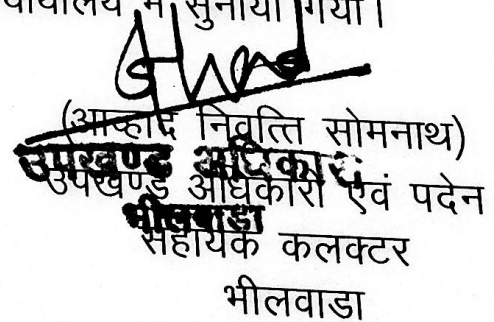 यालय में सुनाया गया।
(आव्हाद निवृत्ति सोमनाथ)
उपखण्ड अधिकारी
उपखण्ड अधिकारी एवं पदेन
भीलवाडा
सहायक कलक्टर
भीलवाडा